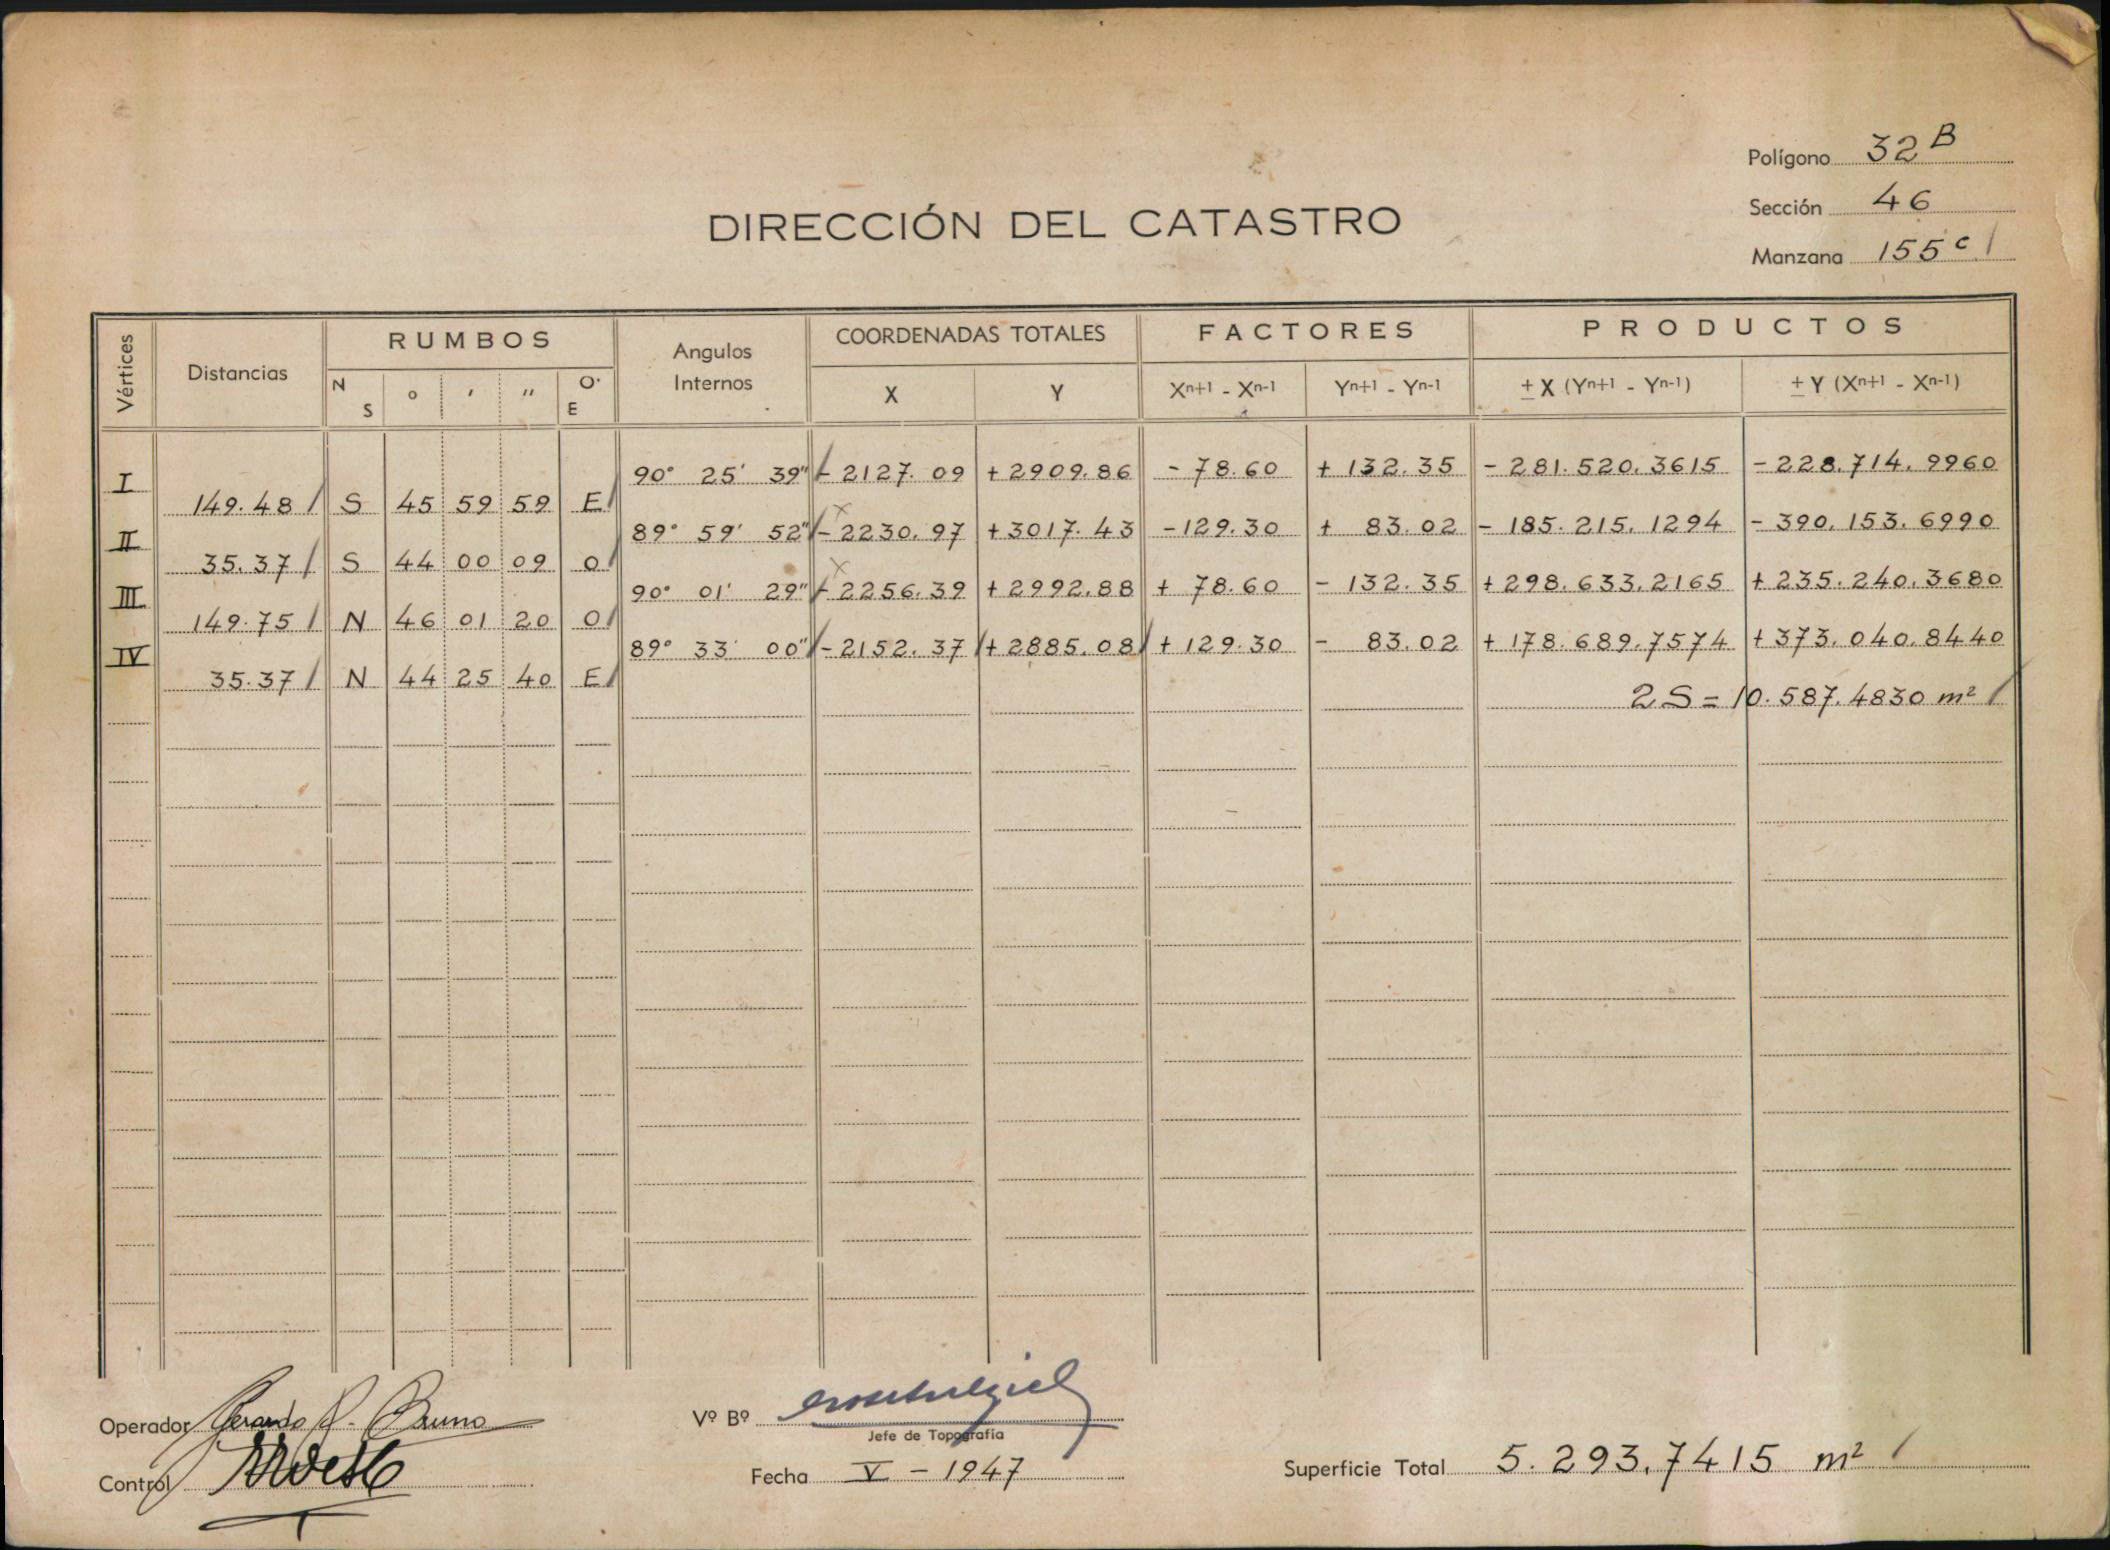 Polígono 32 B
Sección 46
Manzana 155 c
DIRECCIÓN DEL CATASTRO
Vértices Distancias RUMBOS Angulos Internos COORDENADAS TOTALES FACTORES PRODUCTOS
N S ° ' " O. E X Y Xn+1 - Xn-1 Yn+1 - Yn-1 ± X (Yn+1 - Yn-1) ± Y (Xn+1 - Xn-1)
I 90° 25' 39" - 2127.09 + 2909.86 - 78.60 + 132.35 - 281.520.3615 - 228.714.9960
149.48 S 45 59 59 E
II 89° 59' 52" - 2230.97 + 3017.43 - 129.30 + 83.02 - 185.215.1294 - 390.153.6990
35.37 S 44 00 09 O
III 90° 01' 29" - 2256.39 + 2992.88 + 78.60 - 132.35 + 298.633.2165 + 235.240.3680
149.75 N 46 01 20 O
IV 89° 33' 00" - 2152.37 + 2885.08 + 129.30 - 83.02 + 178.689.7574 + 373.040.8440
35.37 N 44 25 40 E
2S = 10.587.4830 m²
Operador Gerardo Bruno
Vº Bº
Jefe de Topografía
Control
Fecha V - 1947
Superficie Total 5.293.7415 m²